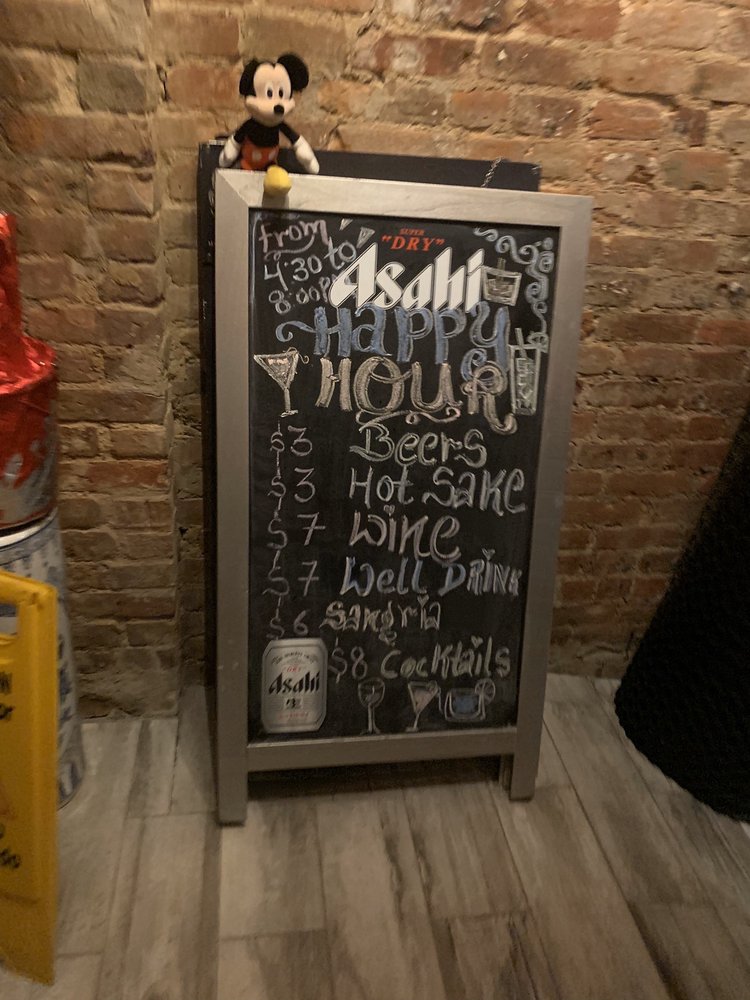 From
4:30 to
8:00P
SUPER
"DRY"
Asahi
Happy
Hour
$3 Beers
$3 Hot Sake
$7 Wine
$7 Well Drink
$6 Sangria
$8 Cocktails
DRY
Asahi